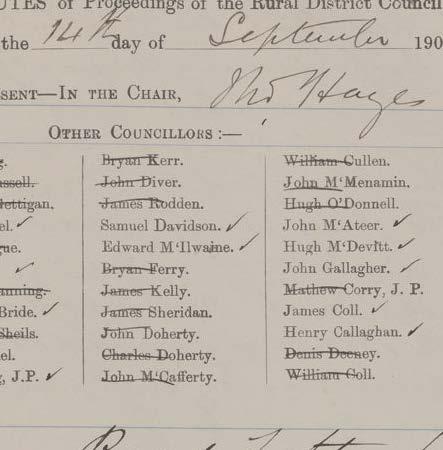 UTES of Proceedings of the Rural District Council
the 14th day of September 190
ESENT—IN THE CHAIR, Thos Hayes
OTHER COUNCILLORS :—
Bryan Kerr. William Cullen.
ussell. John Diver. John M‘Menamin.
Mettigan. James Rodden. Hugh O'Donnell.
el. ✓ Samuel Davidson. ✓ John M‘Ateer. ✓
gue. Edward M‘Ilwaine. ✓ Hugh M‘Devitt. ✓
✓ Bryan Ferry. John Gallagher. ✓
anning. James Kelly. Mathew Corry, J. P.
Bride. ✓ James Sheridan. James Coll. ✓
Sheils. John Doherty. Henry Callaghan. ✓
el. Charles Doherty. Denis Deeney.
, J.P. ✓ John M‘Cafferty. William Coll.